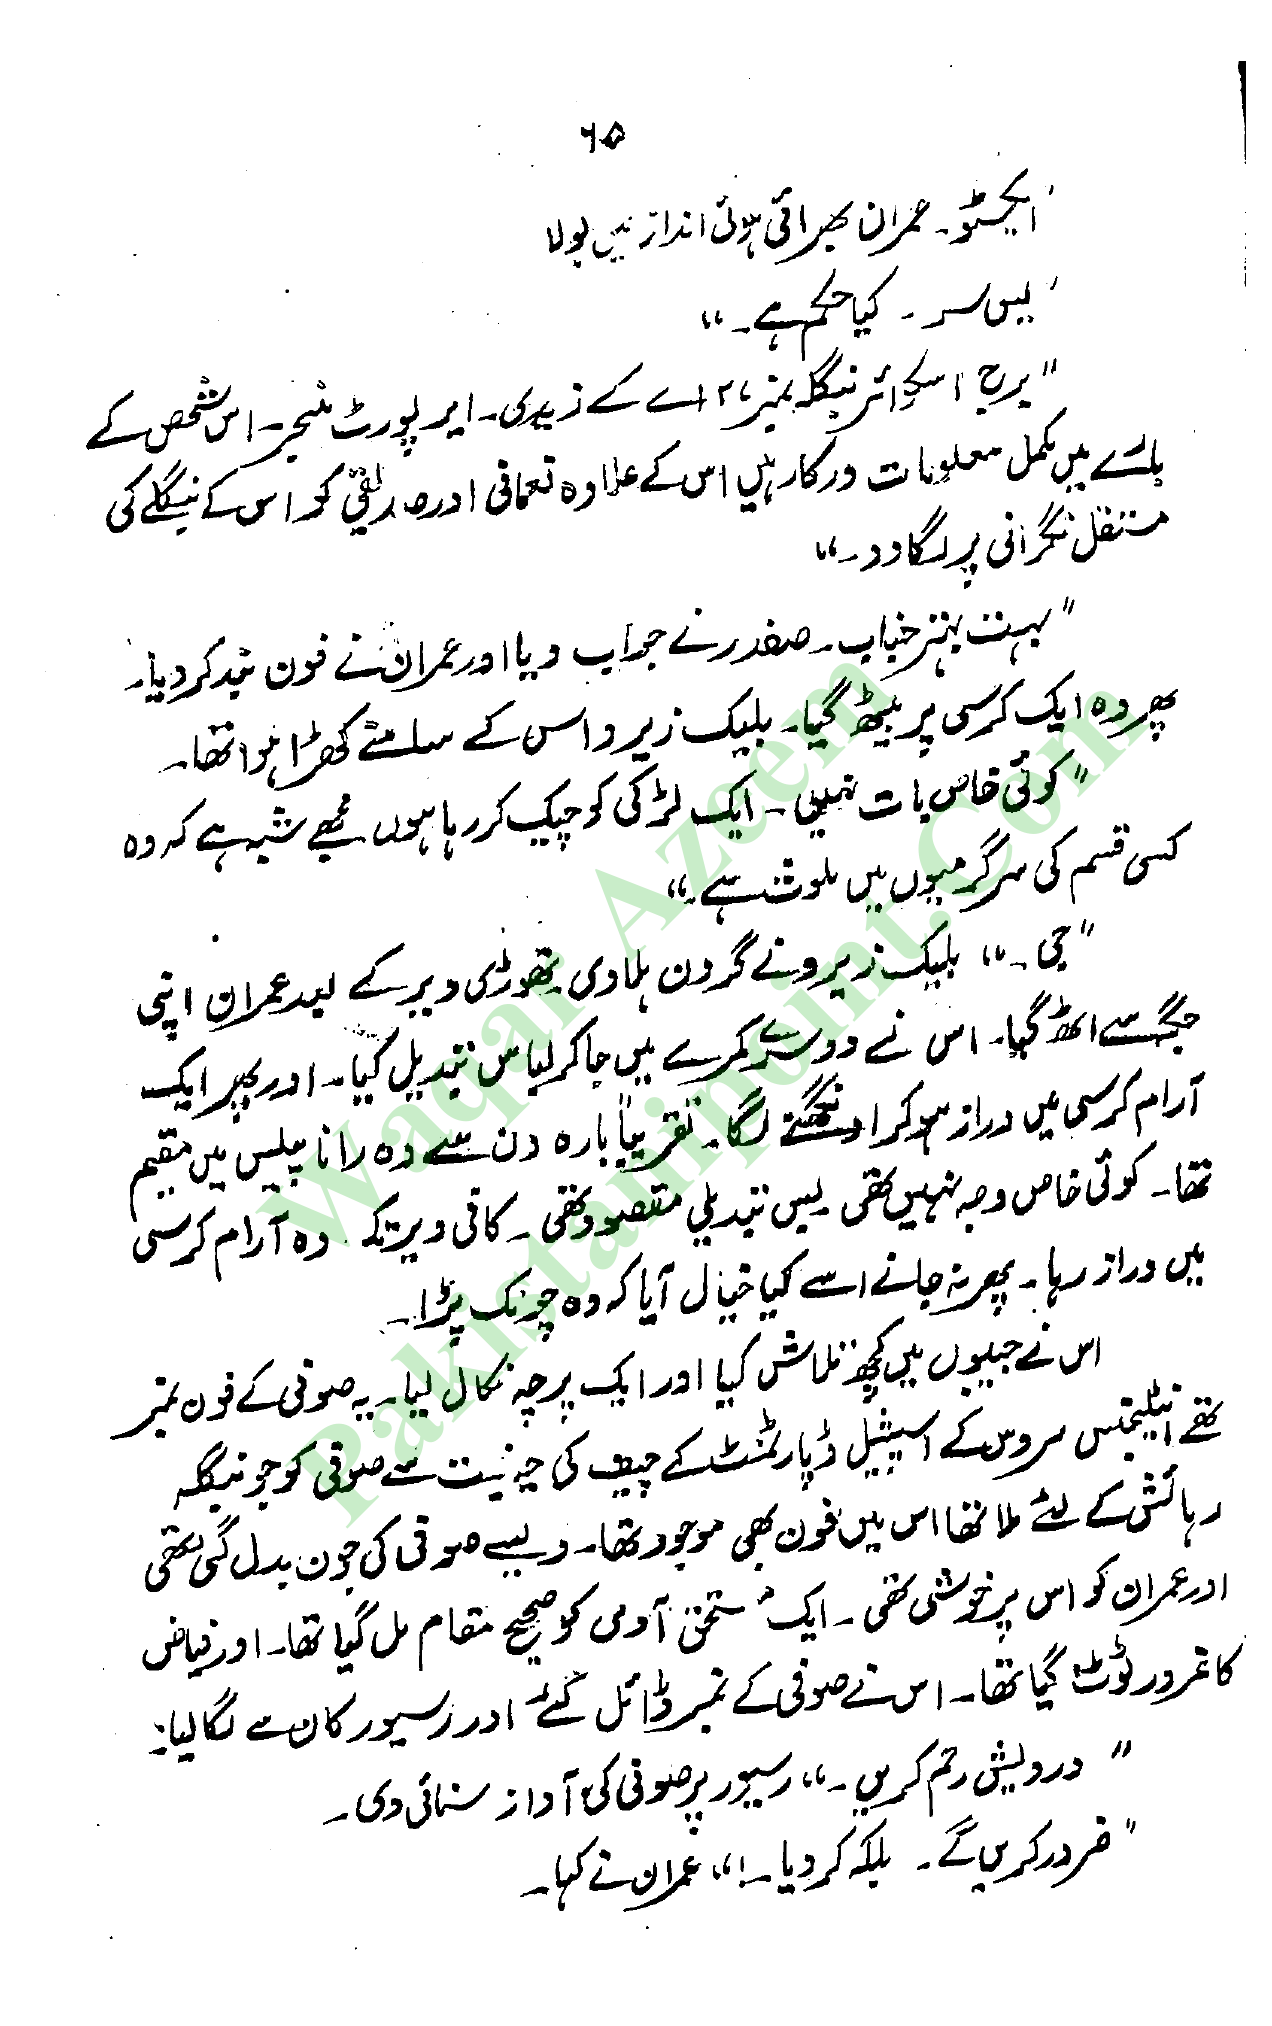 ۶۵
"ایکسٹو۔ عمران بھرائی ہوئی انداز میں بولا
"یس سر۔ کیا حکم ہے۔"
"برج اسکوائر بنگلہ نمبر ۱۲۷ اے کے زیدی۔ ایر پورٹ منیجر۔ اس شخص کے
بارے میں مکمل معلومات درکار ہیں اس کے علاوہ نعمانی اور صدیقی کو اس کے بنگلے کی
مستقل نگرانی پر لگا دو۔"
"بہت بہتر جناب۔ صفدر نے جواب دیا اور عمران نے فون بند کر دیا۔
پھر وہ ایک کرسی پر بیٹھ گیا۔ بلیک زیرو اس کے سامنے کھڑا ہوا تھا۔
"کوئی خاص بات نہیں۔ ایک لڑکی کو چیک کر رہا ہوں مجھے شبہ ہے کہ وہ
کسی قسم کی سرگرمیوں میں ملوث ہے۔"
"جی۔" بلیک زیرو نے گردن ہلا دی۔ تھوڑی دیر کے بعد عمران اپنی
جگہ سے اٹھ گیا۔ اس نے دوسرے کمرے میں جا کر لباس تبدیل کیا۔ اور پھر ایک
آرام کرسی میں دراز ہو کر اونگھنے لگا۔ تقریباً بارہ دن سے وہ رانا پیلس میں مقیم
تھا۔ کوئی خاص وجہ نہیں تھی بس تبدیلی مقصود تھی۔ کافی دیر تک وہ آرام کرسی
میں دراز رہا۔ پھر نہ جانے اسے کیا خیال آیا کہ وہ چونک پڑا۔
اس نے جیبوں میں کچھ تلاش کیا اور ایک پرچہ نکال لیا۔ یہ صوفی کے فون نمبر
تھے انٹیلیجنس سروس کے اسپیشل ڈپارٹمنٹ کے چیف کی حیثیت سے صوفی کو جو بنگلہ
رہائش کے لئے ملا تھا اس میں فون بھی موجود تھا۔ ویسے صوفی کی جون بدل گئی تھی
اور عمران کو اس پر خوشی تھی۔ ایک مستحق آدمی کو صحیح مقام مل گیا تھا۔ اور فیاض
کا غرور ٹوٹ گیا تھا۔ اس نے صوفی کے نمبر ڈائل کئے اور رسیور کان سے لگا لیا۔
"درویش رحم کریں۔" رسیور پر صوفی کی آواز سنائی دی۔
"ضرور کریں گے۔ بلکہ کر دیا۔!" عمران نے کہا۔
Waqar Azeem
Pakistanipoint.Com